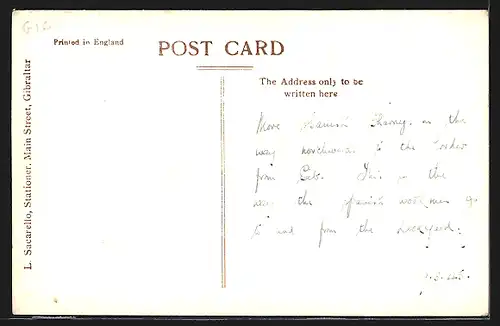 G12
Printed in England
POST CARD
The Address only to be
written here
L. Sacarello, Stationer, Main Street, Gibraltar
More Spanish on the
way to the border
from Gib. This is the
the Spanish workmen go
to and from the dockyard.